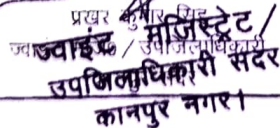 प्रखर कुमार सिंह
ज्वाइंट मजिस्ट्रेट / उपजिलाधिकारी
ज्वाइंट मजिस्ट्रेट /
उपजिलाधिकारी सदर
कानपुर नगर।